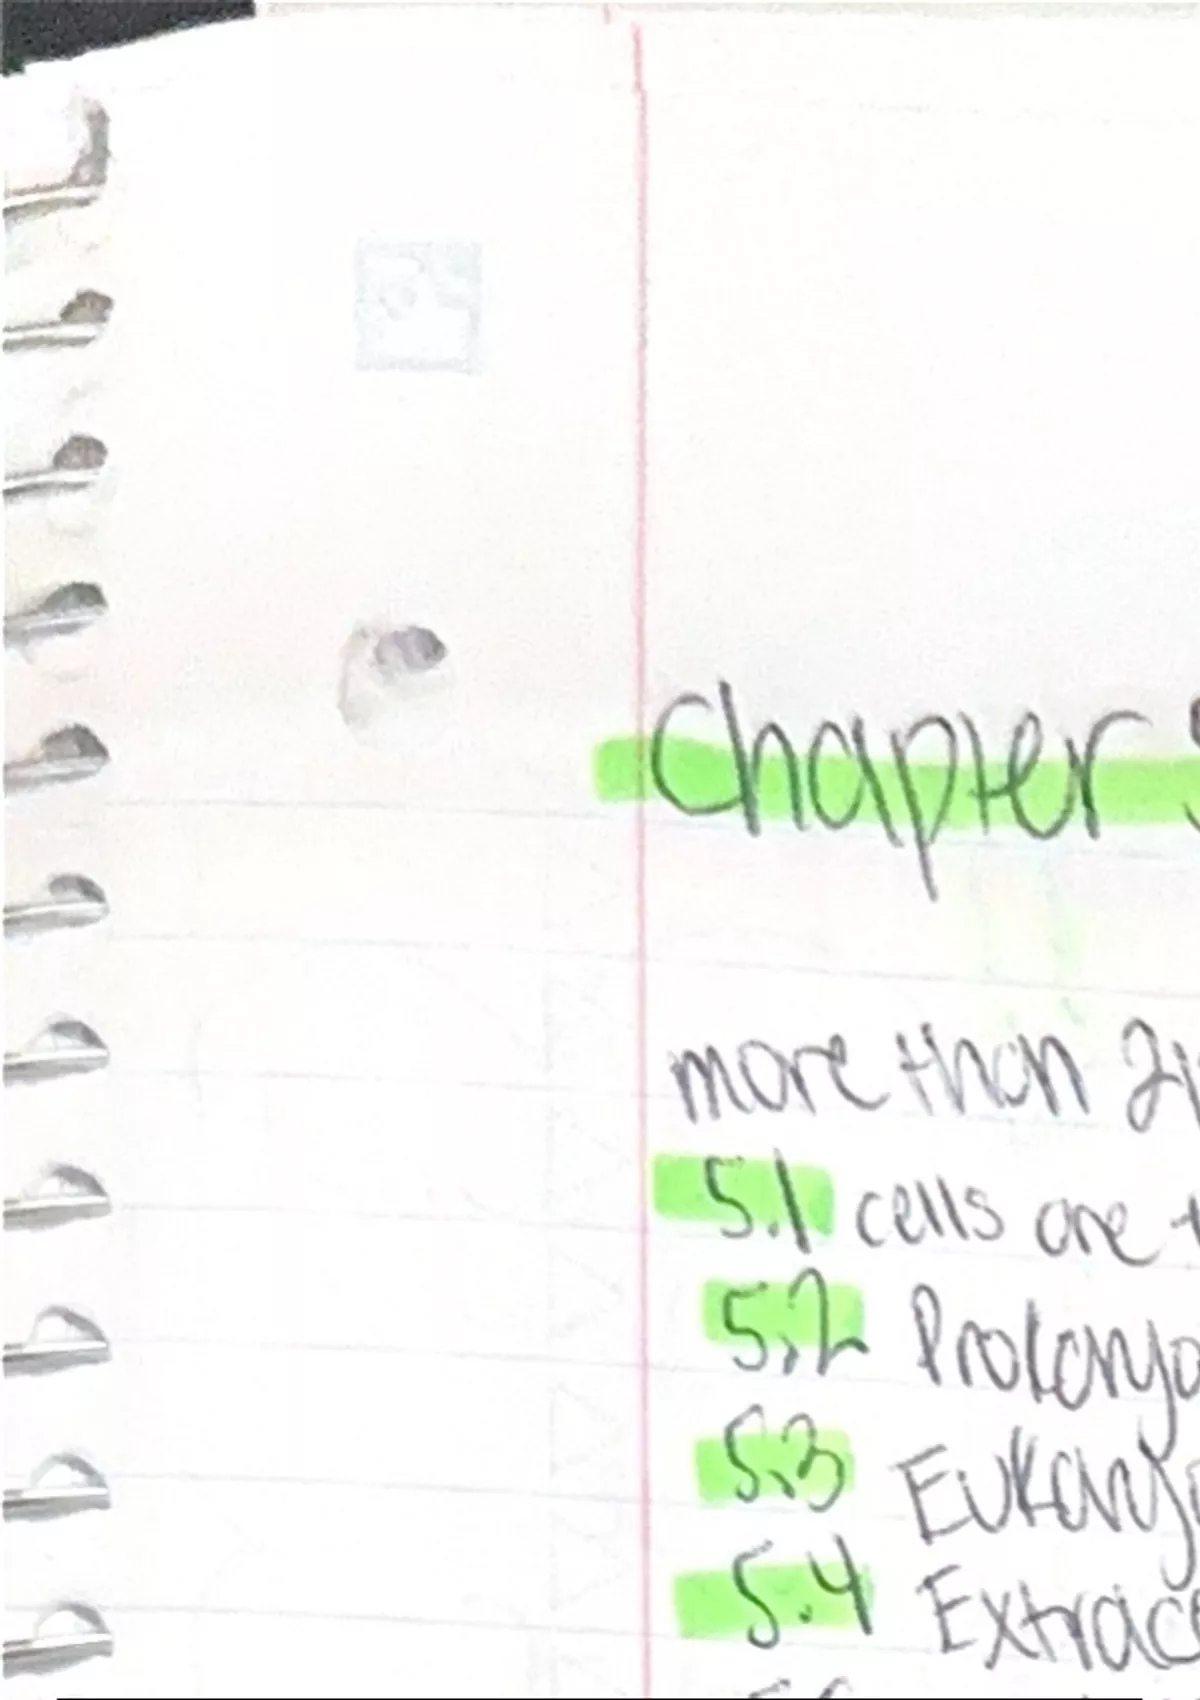 Chapter 5
more than 21
5.1 cells are t
5.2 Prokaryo
5.3 Eukaryo
5.4 Extrace